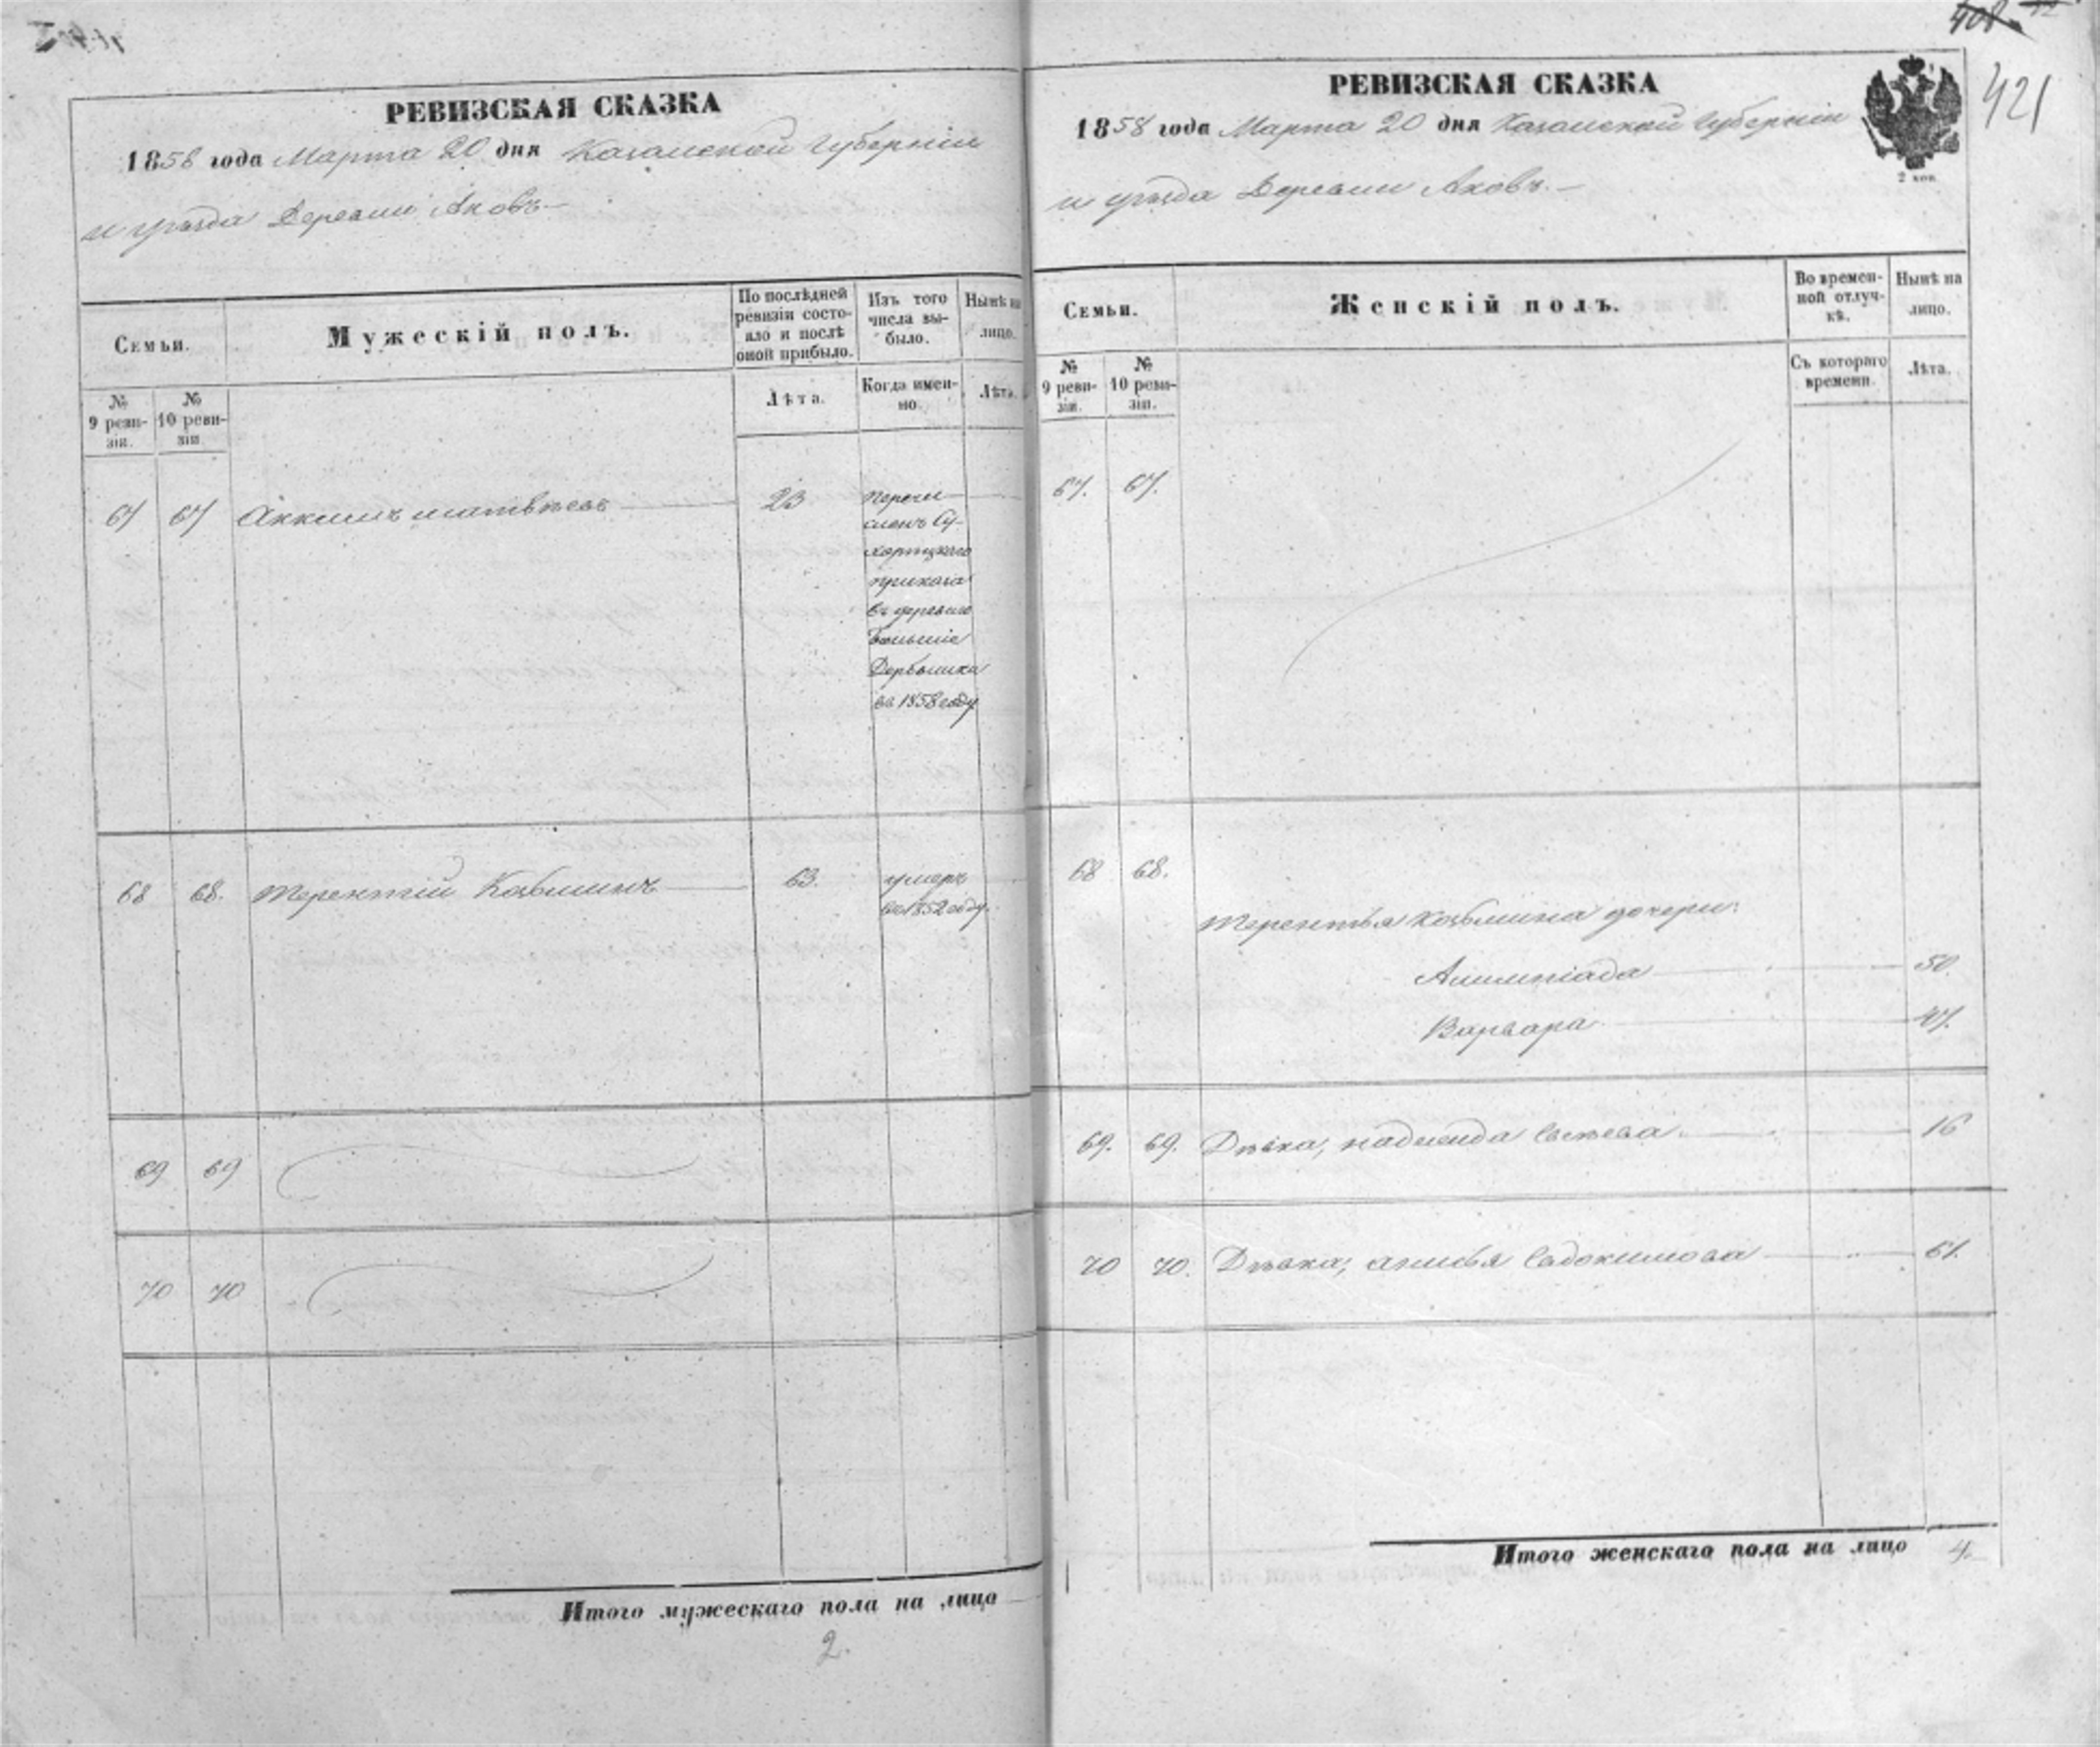 РЕВИЗСКАЯ СКАЗКА
1858 года Марта 20 дня Казанской Губерніи
и уѣзда Деревни Аковъ.
Семьи.
Мужескій полъ.
По послѣдней ревизіи состояло и послѣ оной прибыло.
Изъ того числа выбыло.
Нынѣ на лицо.
№ 9 ревизіи.
№ 10 ревизіи.
Лѣта.
Когда именно.
Лѣта.
67 67 Аккимъ Матвѣевъ 23
Перечи-
сленъ
приказа
въ деревню
Большіе
Дербышки
въ 1858 году
68 68. Терентій Козьминъ 63.
умеръ
въ 1852 году.
69 69
70 70
Итого мужескаго пола на лицо
2.
408
421
РЕВИЗСКАЯ СКАЗКА
1858 года Марта 20 дня Казанской Губерніи
2 коп.
и уѣзда Деревни Аковъ.
Семьи.
Женскій полъ.
Во времен-
ной отлуч-
кѣ.
Нынѣ на
лицо.
№ 9 ревизіи.
№ 10 ревизіи.
Съ котораго
времени.
Лѣта.
67. 67.
68 68.
Терентья Козьмина дочери:
Алимпіада 50.
Варвара 47.
69. 69. Дѣвка, Надежда 16
70 70. Дѣвка, Анисья Евдокимова 61.
Итого женскаго пола на лицо 4.